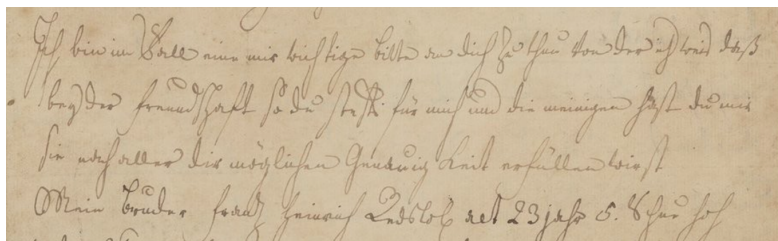 Ich bin im Fall eine mir wichtige bitte an dich zu thun von der ich weis daß
bey der freundschaft so du stets für mich und die meinigen hast du mir
sie nach aller dir möglichen Genauig keit erfüllen wirst
Mein bruder frantz Heinrich Redslob alt 23 jahr 5. Schu hoch